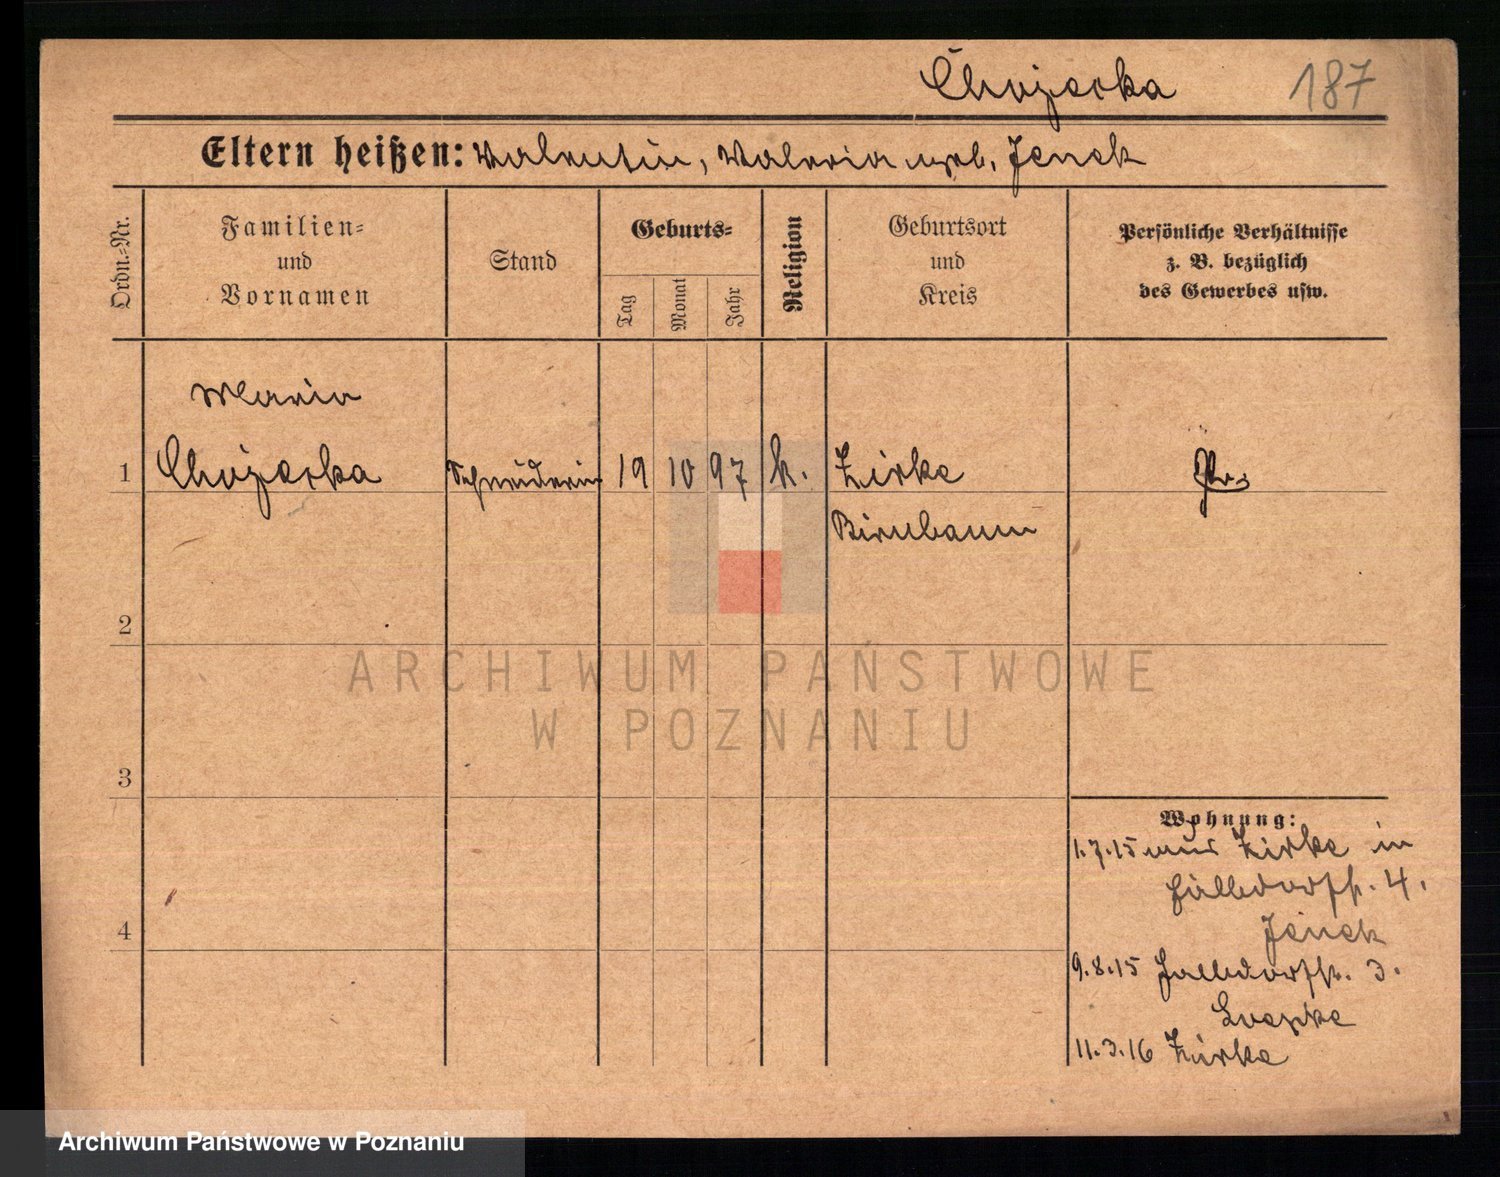 Chojecka 187
Eltern heißen: Valentin, Valeria geb. Jenek
Ordn.-Nr.
Familien-
und
Vornamen
Stand
Geburts-
Tag
Monat
Jahr
Religion
Geburtsort
und
Kreis
Persönliche Verhältnisse
z. B. bezüglich
des Gewerbes usw.
Maria
1 Chojecka Schneiderin 19 10 97 k. Zirke Pr.
Birnbaum
2
3
4
Wohnung:
1.7.15 aus Zirke in
4.
Jenek
9.8.15 3.
11.3.16 Zirke
ARCHIWUM PAŃSTWOWE
W POZNANIU
Archiwum Państwowe w Poznaniu